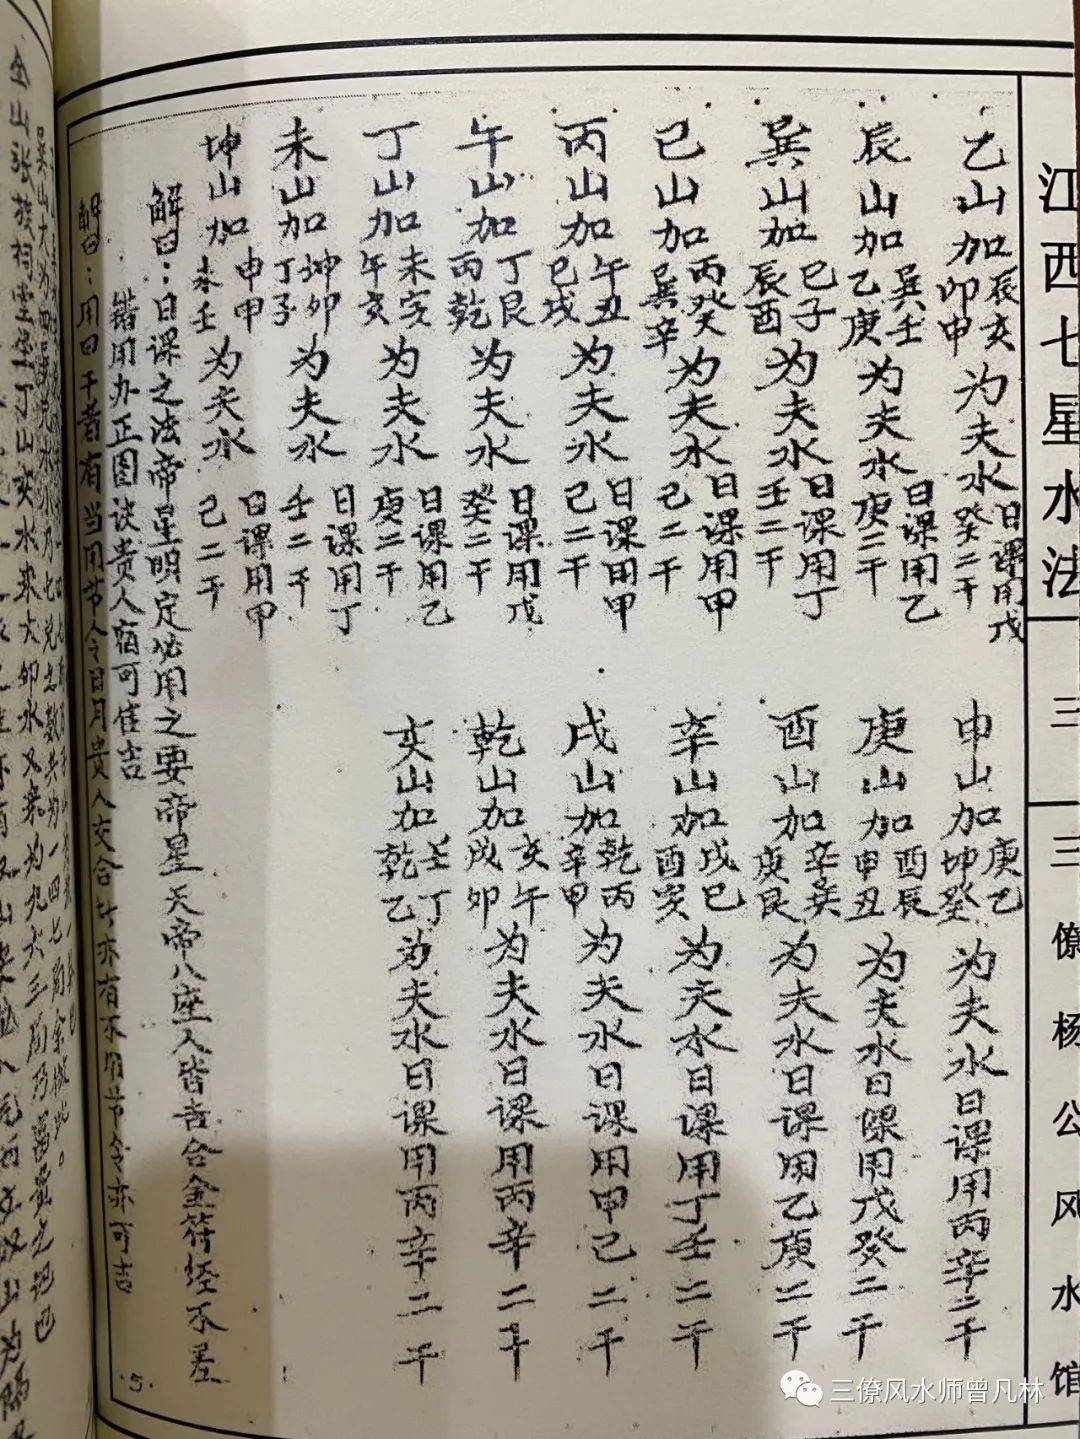 江西七星水法
三
三僚杨公风水馆
乙山加辰亥卯申为夫水日课用戊癸二干
辰山加巽壬乙庚为夫水日课用乙庚二干
巽山加巳子辰酉为夫水日课用丁壬二干
巳山加丙癸巽辛为夫水日课用甲己二干
丙山加午丑巳戌为夫水日课用甲己二干
午山加丁艮丙乾为夫水日课用戊癸二干
丁山加未寅午亥为夫水日课用乙庚二干
未山加坤卯丁子为夫水日课用丁壬二干
坤山加申甲未壬为夫水日课用甲己二干
申山加庚乙坤癸为夫水日课用丙辛二干
庚山加酉辰申丑为夫水日课用戊癸二干
酉山加辛巽庚艮为夫水日课用乙庚二干
辛山加戌巳酉寅为夫水日课用丁壬二干
戌山加乾丙辛甲为夫水日课用甲己二干
乾山加亥午戌卯为夫水日课用丙辛二干
亥山加壬丁乾乙为夫水日课用丙辛二干
解曰：日课之法帝星明定必用之要帝星天帝八座人皆吉合金符经不差
错用办正图诀贵人宿可佳吉
解曰：用日干者有当用节令日月贵人交合计亦有不用节令亦可吉
·5·
金山张族祠堂坐丁山亥水来大卯水又来为九六三局乃
三僚风水师曾凡林